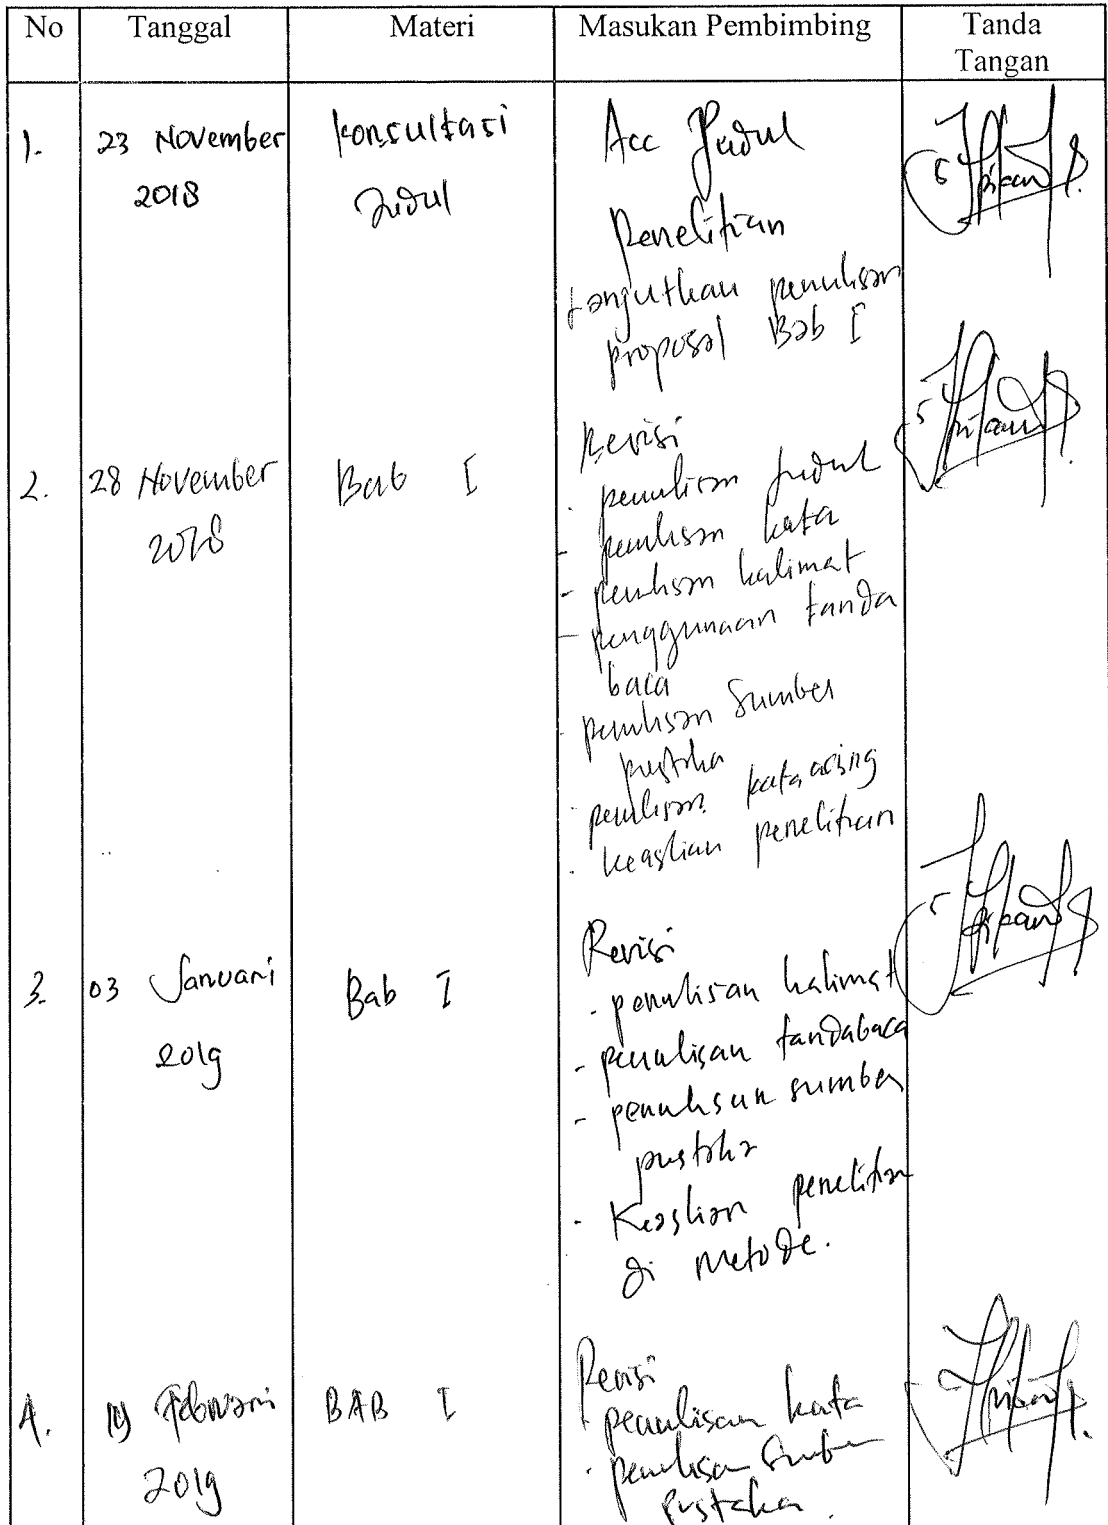 No Tanggal Materi Masukan Pembimbing Tanda
Tangan
1. 23 November konsultasi Acc Judul
2018 Judul Penelitian
Lanjutkan penulisan
proposal Bab I
Revisi
2. 28 November Bab I - penulisan judul
2018 - penulisan kata
- penulisan kalimat
- penggunaan tanda
baca
- penulisan sumber
pustaka
- penulisan kata asing
- keaslian penelitian
Revisi
3. 03 Januari Bab I - penulisan kalimat
2019 - penulisan tandabaca
- penulisan sumber
pustaka
- Keaslian penelitian
di metode.
Revisi
4. Februari BAB I - penulisan kata
2019 - penulisan sumber
pustaka.